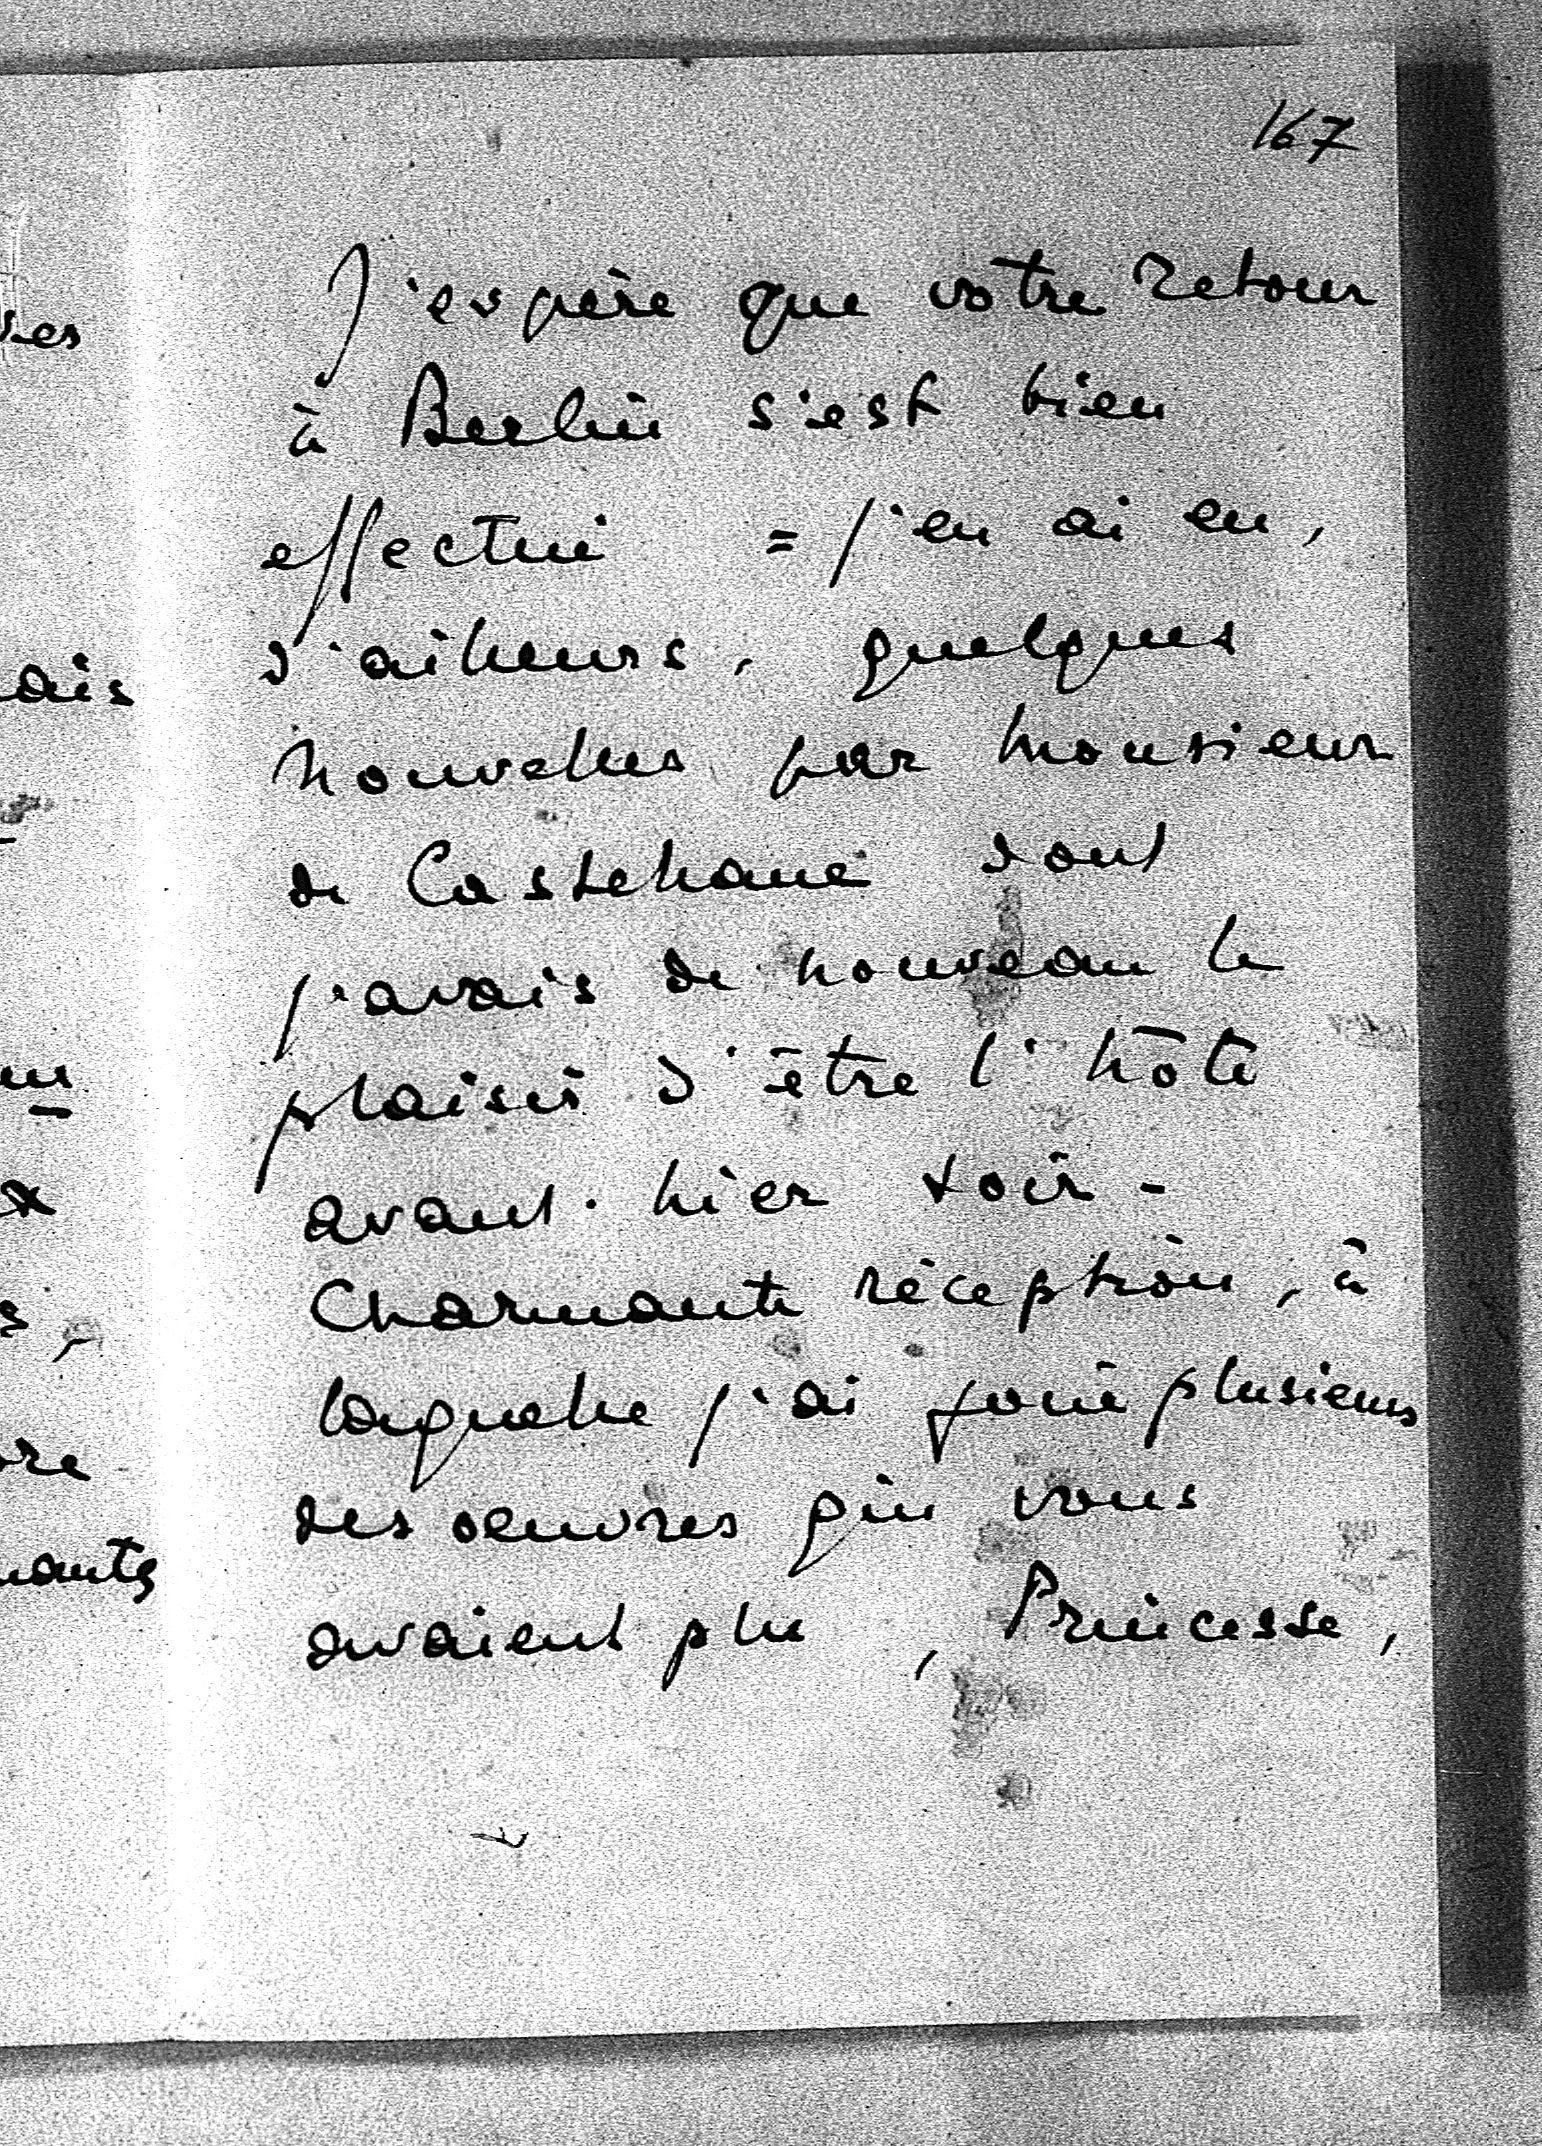 167
J'espère que votre retour
à Berlin s'est bien
effectué = j'en ai eu,
d'ailleurs, quelques
nouvelles par Monsieur
de Castellane dont
j'avais de nouveau le
plaisir d'être l'hôte
avant-hier soir -
Charmante réception, à
laquelle j'ai joué plusieurs
des oeuvres qui vous
avaient plu, Princesse,